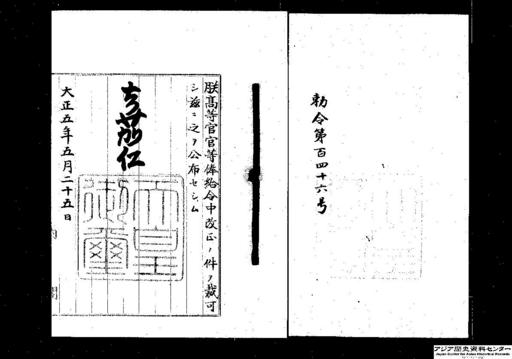 勅令第百四十六号
朕高等官官等俸給令中改正ノ件ヲ裁可
シ茲ニ之ヲ公布セシム
嘉仁
天皇御璽
大正五年五月二十五日
内閣
アジア歴史資料センター
Japan Center for Asian Historical Records